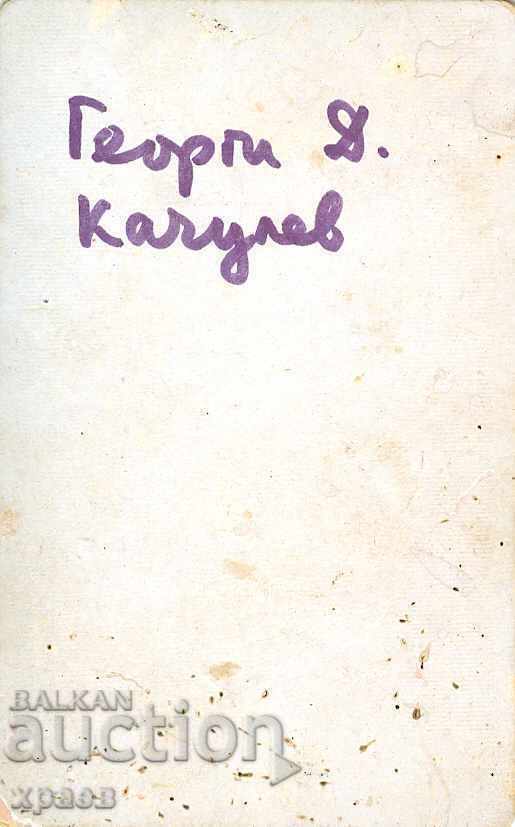 Георги Д.
Качулев
BALKAN
auction
храбв